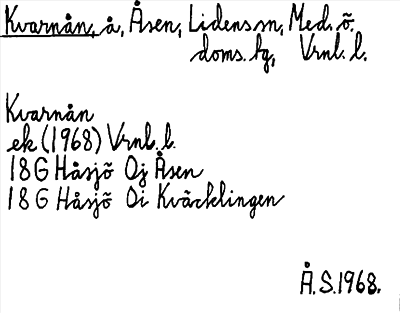 Kvarnån, å, Åsen, Lidens sn, Med.ö.
doms. hg, Vrnl. l.
Kvarnån
ek (1968) Vrnl. l.
18G Håsjö 0j Åsen
18G Håsjö 0i Kväcklingen
Å.S.1968.